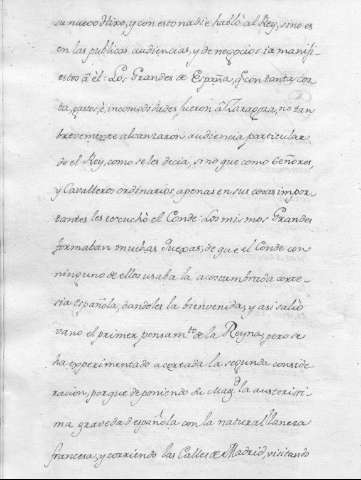 su nuevo Oficio, y con esto nadie habló al Rey, sino es
en las publicas audiencias, y de negocios ia manifi-
estos à él: Los Grandes de España, q.e con tanta cos-
ta, gastos, è incomodidades fueron à Zaragoza, no tan
brevemente alcanzaron audiencia particular
de el Rey, como se les decía, sino que como Señores,
y Cavalleros ordinarios, apenas en sus cosas impor-
tantes les escuchò el Conde: Los mismos Grandes
formaban muchas Quexas, de que el Conde con
ninguno de ellos usaba la acostumbrada corte-
sia española, dandoles la bienvenida, y asi salió
vano el primer pensam.to de la Reyna, pero se
ha experimentado acertada la segunda conside-
racion, porque deponiendo su Mag.d la austerisi-
ma gravedad española con la natural llaneza
francesa, y corriendo las Calles de Madrid, visitando